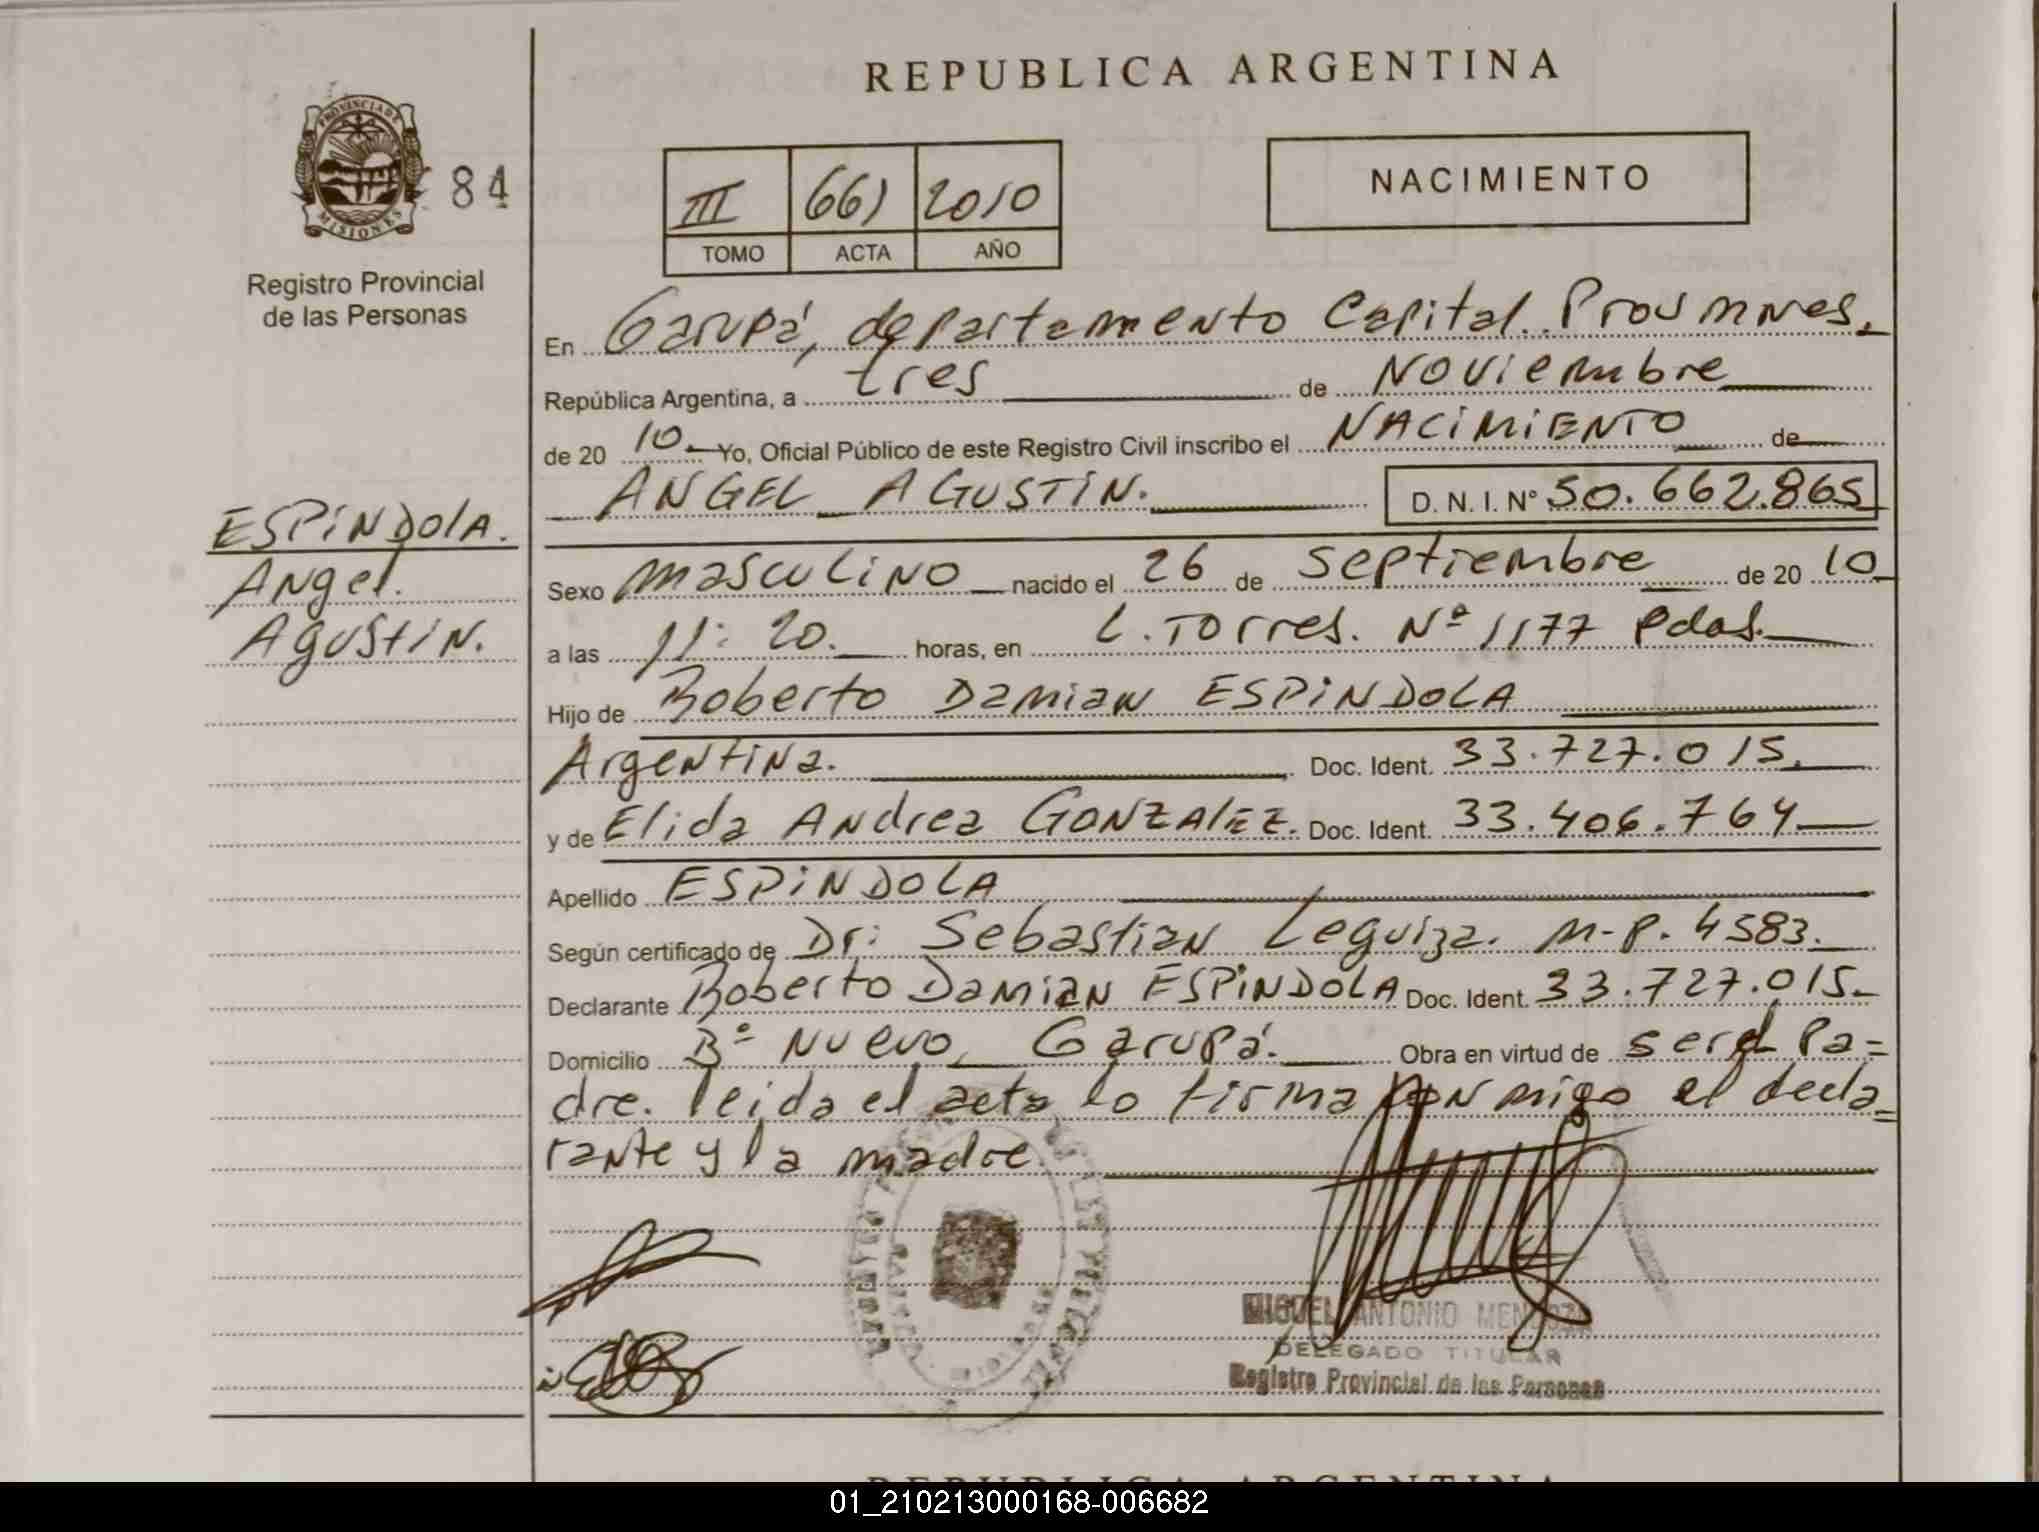 REPUBLICA ARGENTINA
PROVINCIA DE
MISIONES
84
Registro Provincial
de las Personas
III 661 2010
TOMO ACTA AÑO
NACIMIENTO
En Garupá, departamento Capital. Prov Mnes.
República Argentina, a tres de Noviembre
de 20 10.- Yo, Oficial Público de este Registro Civil inscribo el NACIMIENTO de
ANGEL AGUSTIN. D. N. I. Nº 50.662.865
ESPINDOLA.
Angel.
Agustin.
Sexo masculino nacido el 26 de septiembre de 20 10
a las 11:20. horas, en L. Torres. Nº 1177 Pdas.
Hijo de Roberto Damian ESPINDOLA
Argentina. Doc. Ident. 33.727.015.
y de Elida Andrea GONZALEZ. Doc. Ident. 33.406.764
Apellido ESPINDOLA
Según certificado de Dr: Sebastian Leguiza. M-P. 4583.
Declarante Roberto Damian ESPINDOLA Doc. Ident. 33.727.015.
Domicilio Bº Nuevo, Garupá. Obra en virtud de ser el Pa=
dre. leida el acta lo firma con migo el decla=
rante y la madre
MIGUEL ANTONIO MENDOZA
DELEGADO TITULAR
Registro Provincial de las Personas
REPUBLICA ARGENTINA
01_210213000168-006682